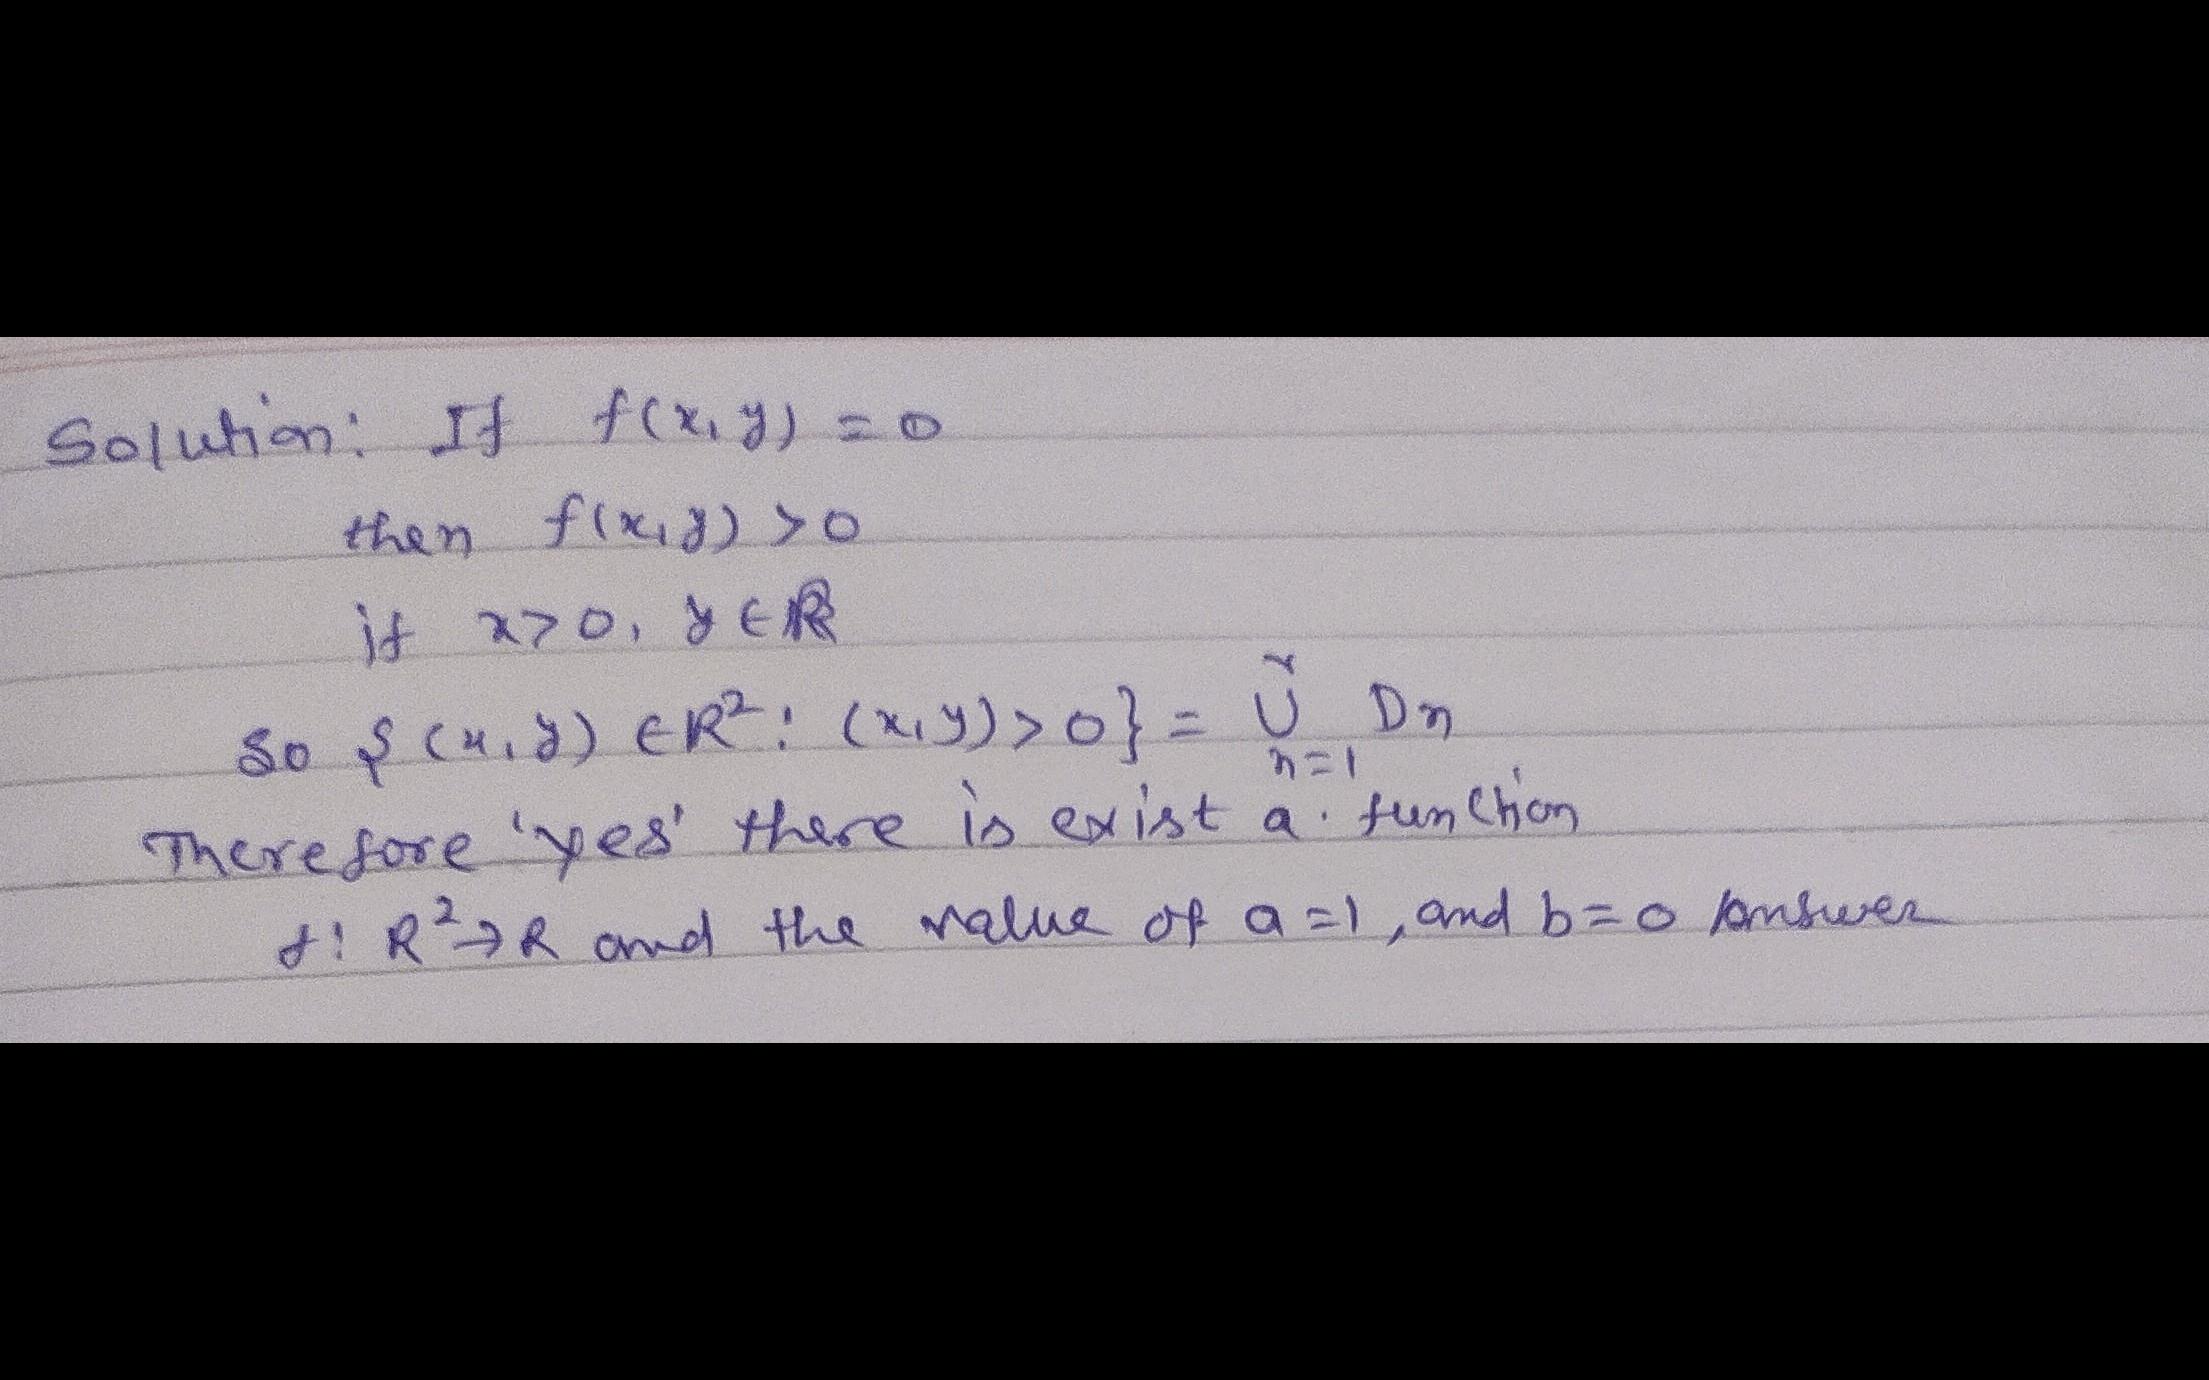 Solution: If f(x, y) = 0
then f(x, y) > 0
if x > 0, y ∈ R
So {(x, y) ∈ R²: (x, y) > 0} = ∪ Dn
n=1
Therefore 'yes' there is exist a function
f: R² → R and the value of a = 1, and b = 0 Answer